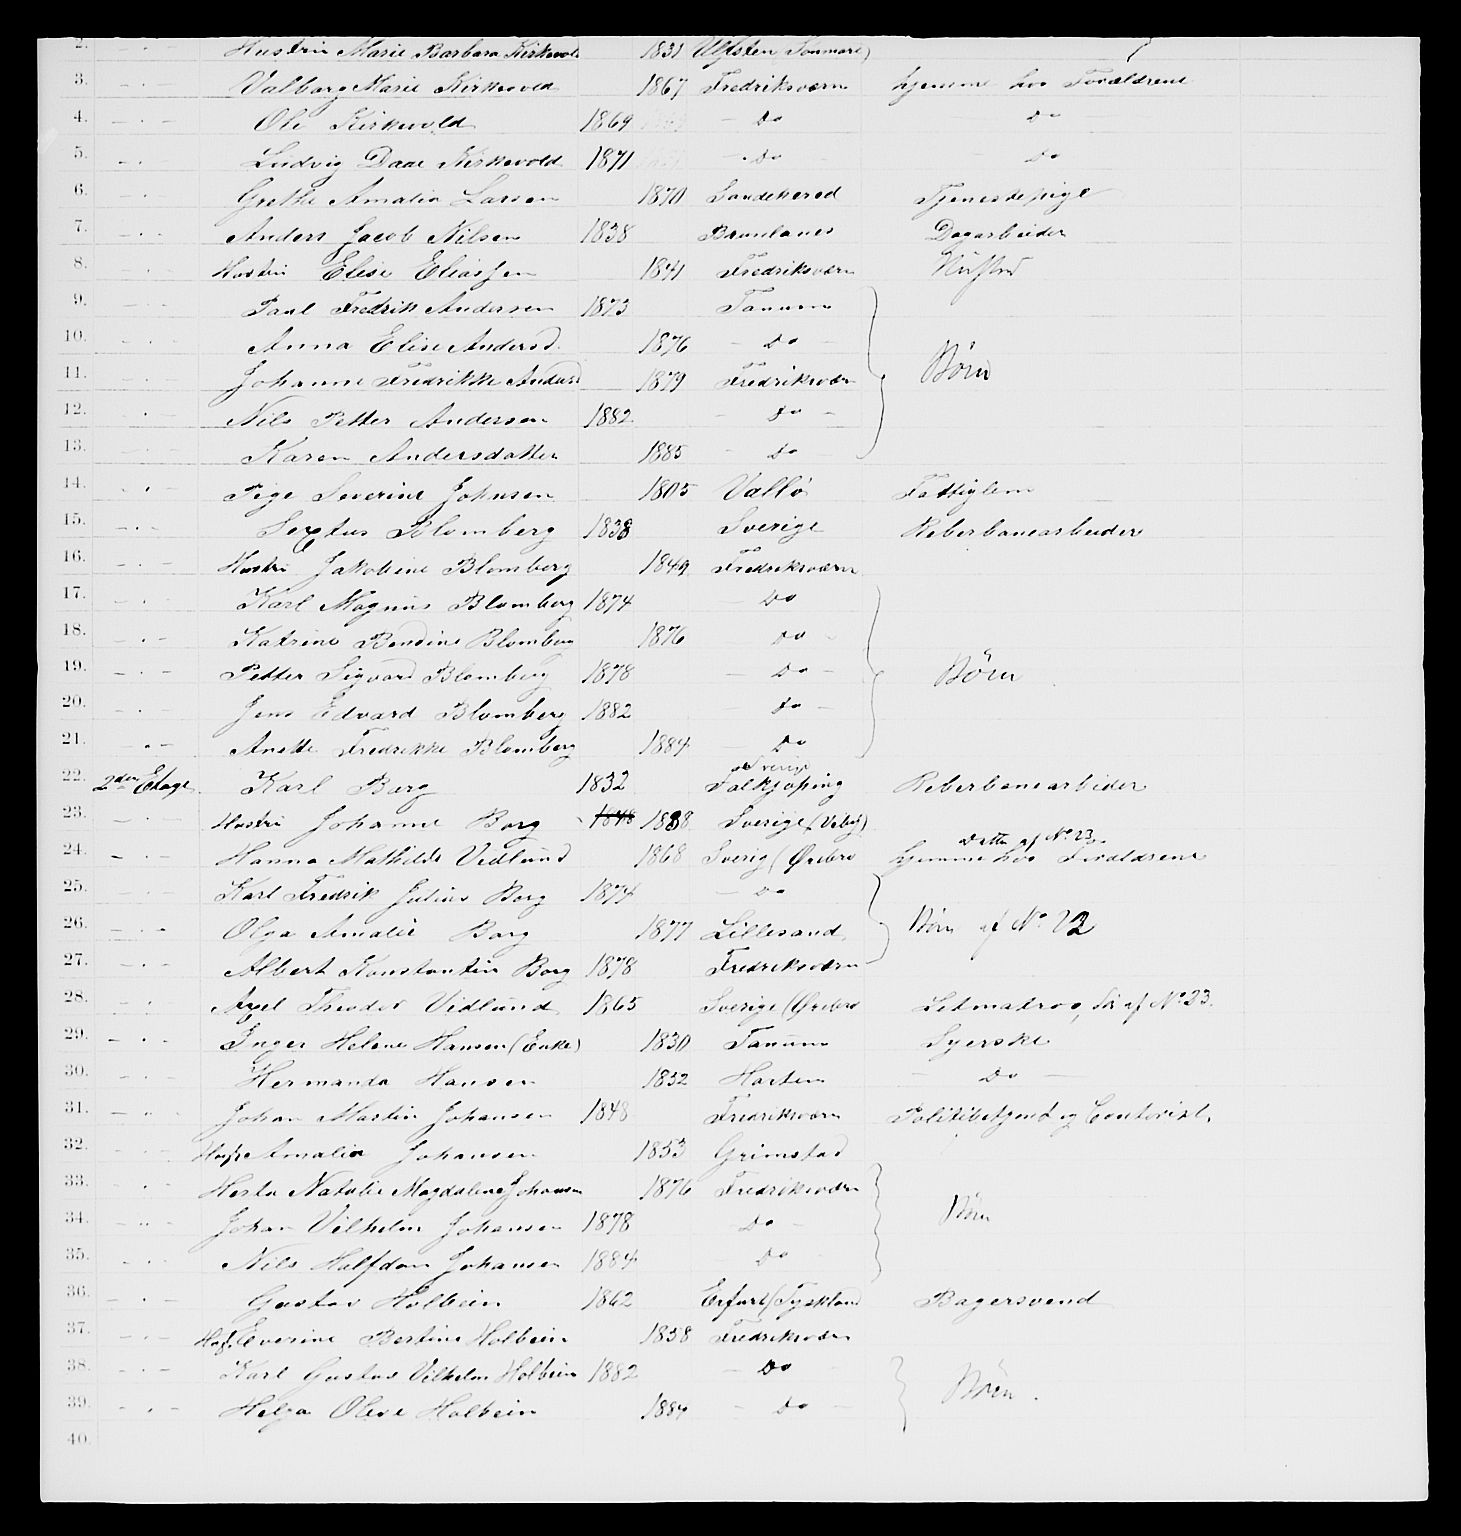 2. — . — Hustru Marie Barbara Kirkevold 1831 Ulfsten (Sønmøre)
3. — . — Valborg Marie Kirkevold 1867 Fredriksværn hjemme hos Forældrene
4. — . — Ole Kirkevold 1869 — Do Do
5. — . — Ludvig Daae Kirkevold 1871 — Do Do
6. — . — Grethe Amalia Larsen 1870 Sandeherred Tjenestepige
7. — . — Anders Jacob Nilsen 1838 Brunlanes Dagarbeider
8. — . — Hustru Elise Eliassen 1841 Fredriksværn
9. — . — Paul Fredrik Andersen 1873 Tanum
10. — . — Anna Elise Andersd. 1876 — Do —
11. — . — Johanne Fredrikke Andersd 1879 Fredriksværn Børn
12. — . — Nils Petter Andersen 1882 — Do —
13. — . — Karen Andersdatter 1885 — Do
14. — . — Pige Severine Johnsen 1805 Vallø Fattiglem
15. — . — Sextus Blomberg 1838 Sverige Reberbanearbeider
16. — . — Hustru Jakobine Blomberg 1849 Fredriksværn
17. — . — Karl Magnus Blomberg 1874 Do
18. — . — Katrine Bendine Blomberg 1876 Do —
19. — . — Petter Sigvard Blomberg 1878 — Do — Børn
20. — . — Jens Edvard Blomberg 1882 — Do —
21. — . — Anette Fredrikke Blomberg 1884 — Do
22. 2den Etage. Karl Borg 1832 Sverige Falkjøping Reberbanearbeider
23. — . — Hustru Johanne Borg 1848 1838 Sverige (Veby)
24. — . — Hanna Mathilde Vidlund 1868 Sverig (Ørebro Datter af No 23. hjemme hos Forældrene
25. — . — Karl Fredrik Julius Borg 1874 — Do
26. — . — Olga Amalie Borg 1877 Lillesand Børn af No 22
27. — . — Albert Konstantin Borg 1878 Fredriksværn
28. — . — Axel Theodor Vidlund 1865 Sverige (Ørebro Letmatros, Søn af No 23.
29. — . — Inger Helene Hansen (Enke) 1830 Tanum Syerske
30. — . — Hermanda Hansen 1832 Horten — Do —
31. — . — Johan Martin Johansen 1848 Fredriksværn Politibetjent og Contorist.
32. — . — Amalia Johansen 1853 Grimstad
33. — . — Herta Natalie Magdalene Johansen 1876 Fredriksværn
34. — . — Johan Vilhelm Johansen 1878 Do — Børn
35. — . — Nils Halfdan Johansen 1884 Do
36. — . — Gustav Holbein 1862 Erfurt (Tyskland Bagersvend
37. — . — Everine Bertine Holbein 1858 Fredriksværn
38. — . — Karl Gustav Vilhelm Holbein 1882 — Do —
39. — . — Helga Olive Holbein 1884 — Do — Børn.
40.